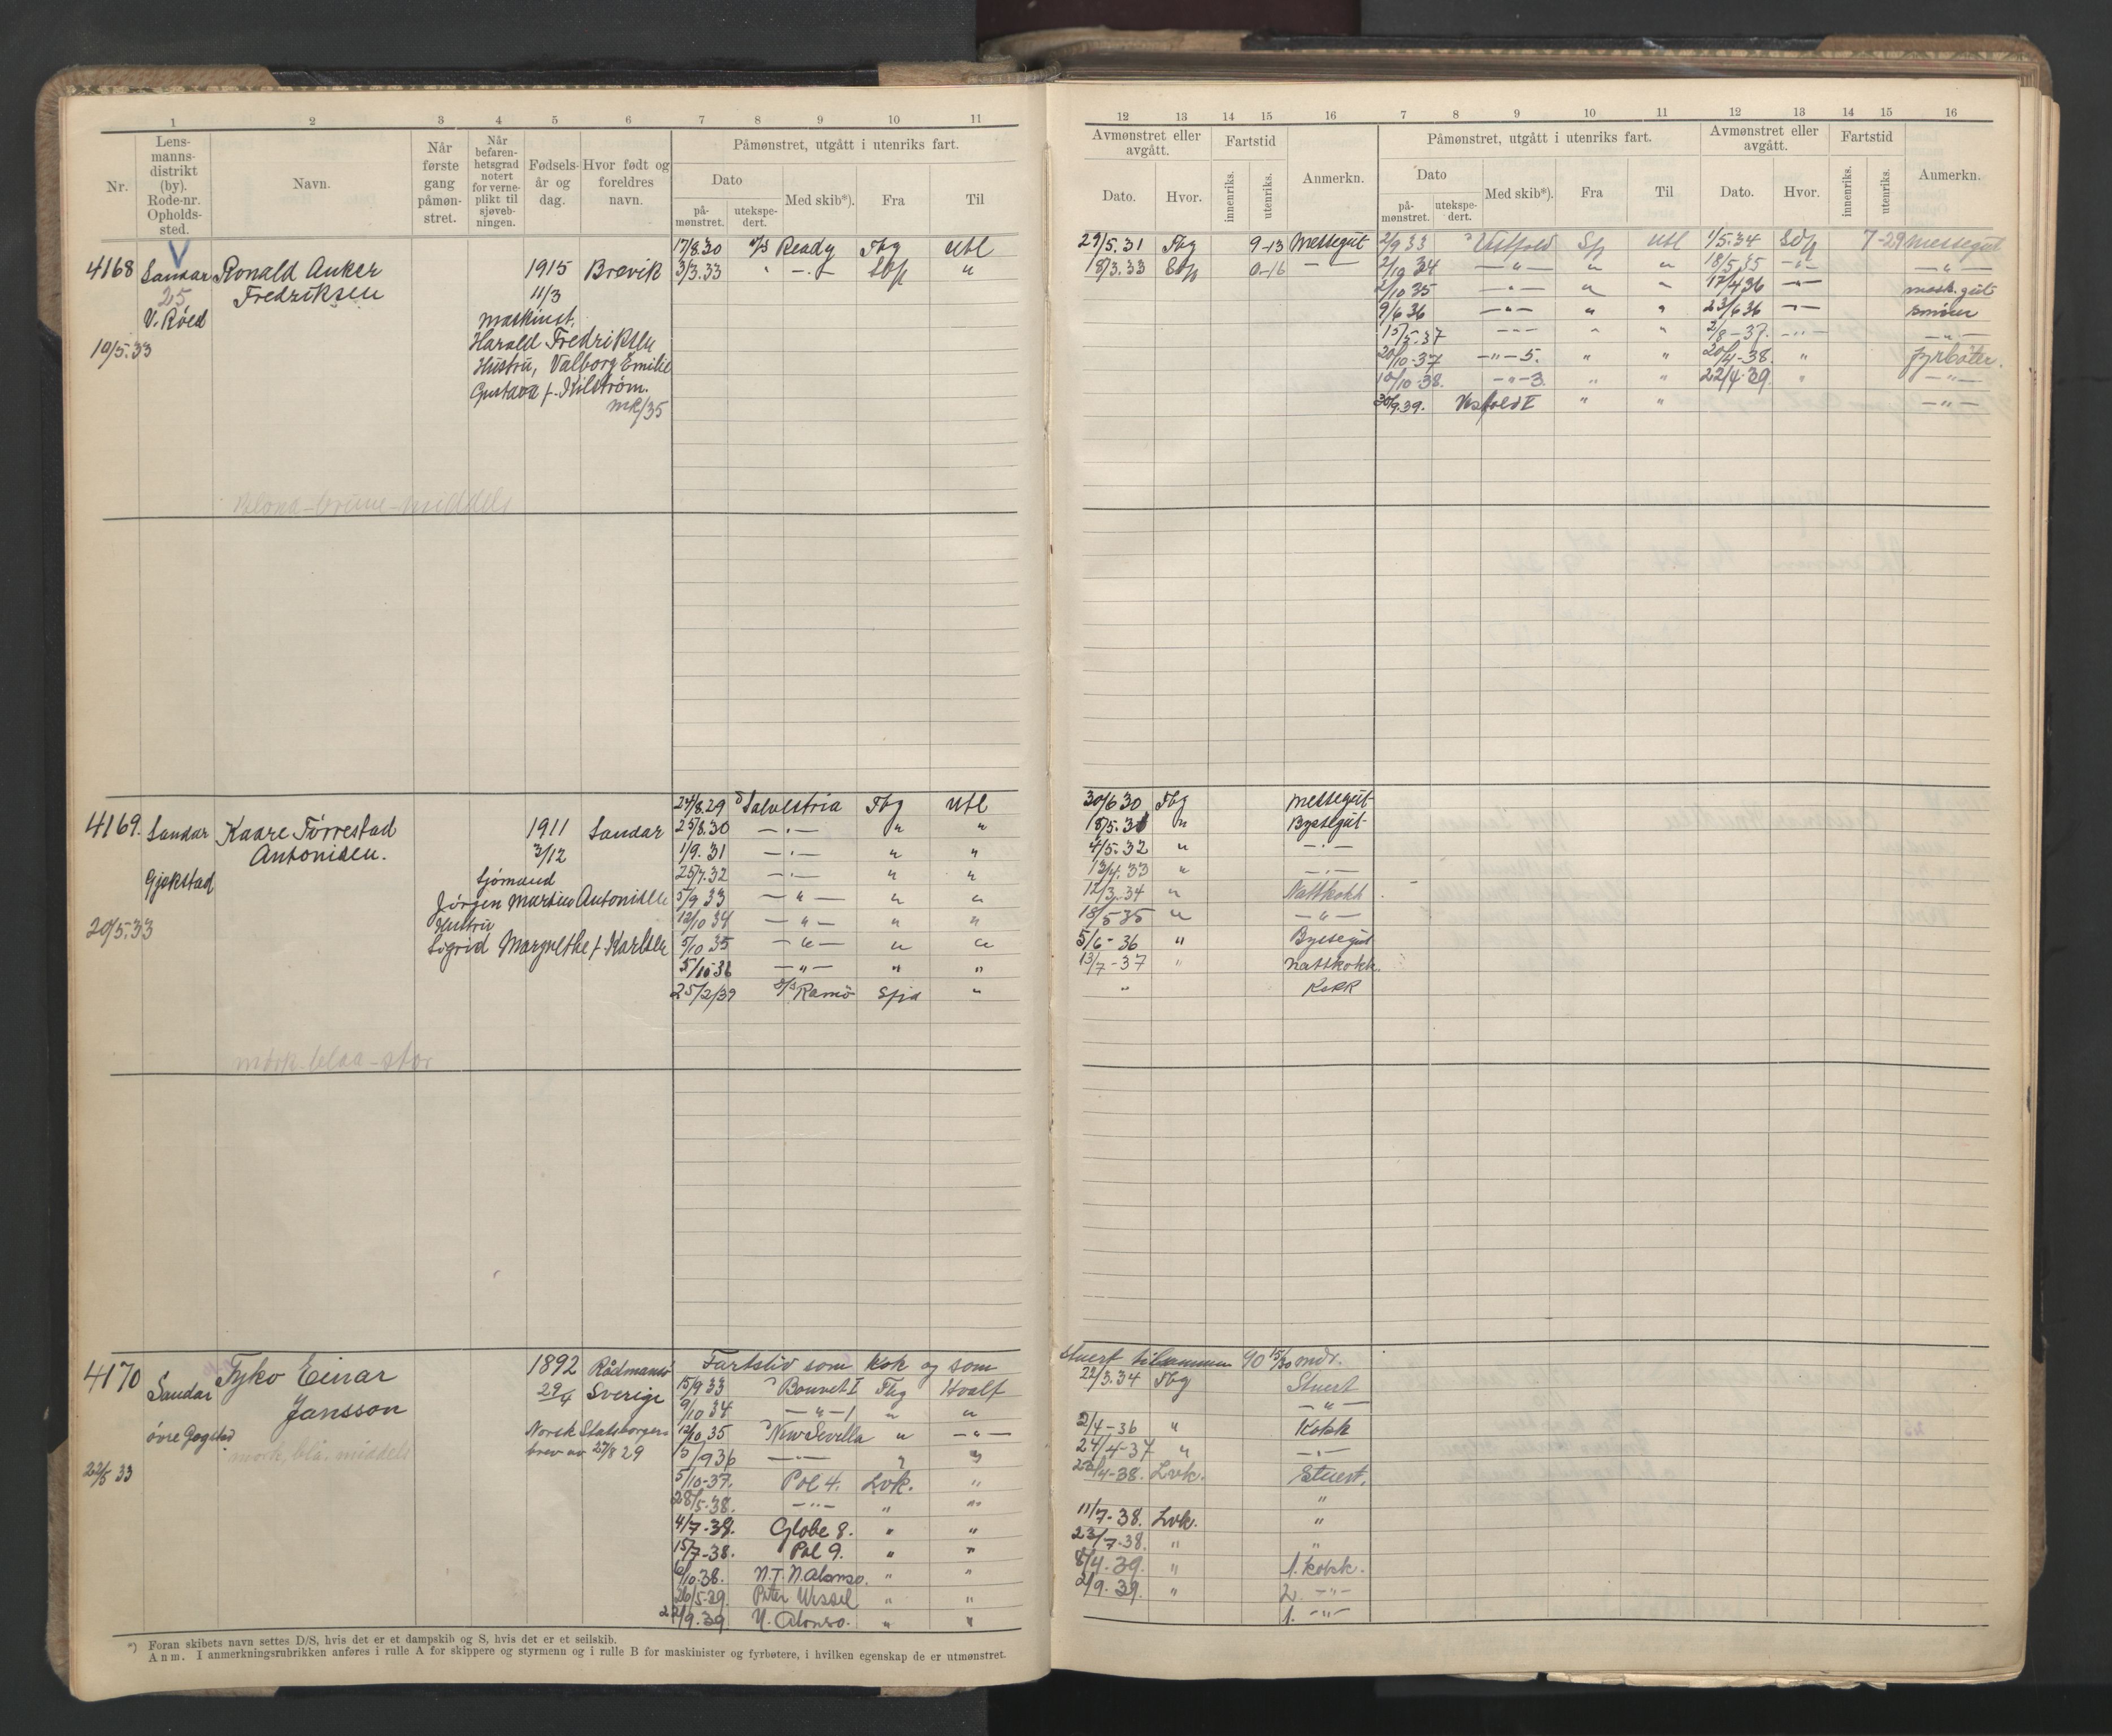 1 2 3 4 5 6 7 8 9 10 11
Nr. Lensmannsdistrikt (by). Rode-nr. Opholdssted. Navn. Når første gang påmønstret. Når befarenhetsgrad notert for verneplikt til sjøvebningen. Fødselsår og dag. Hvor født og foreldres navn. Påmønstret, utgått i utenriks fart.
Dato påmønstret. utekspedert. Med skib*). Fra Til
17/8.30 Ready Tbg Utl
4168 Sandar Ronald Anker 1915 Brevik 3/3.33 " — " —
25 Fredriksen 11/3
V. Røed maskinst.
10/5.33 Harald Fredriksen
Hustru, Valborg Emilie
Gustava f. Kilstrøm.
mk/35
Blond - brune - middels
24/8.29 Salvestria Tbg Utl
4169. Sandar Kaare Tørrestad 1911 Sandar 25/8.30 — " — " "
Antonisen. 3/12 1/9.31 — " — " "
Gjekstad Sjømand 25/7.32 — " — " "
Jørgen Martin Antonisen 5/9 33 — " — " "
20/5.33 Hustru 12/10 34 — " — " "
Sigrid Margrethe f. Karlsen 5/10 35 — " — " "
5/10 36 — " — " "
25/2/39 Ramø "
mørk - blaa - stor
4170 Tyko Einar 1892 Rådmansö Fartstid som kok og som
Sandar Jansson 29/4 Sverige 15/9 33 Bouvet I Tbg Hvalf
9/10 34 — " — 1 " "
øvre Gogstad Norsk Statsborger- 12/10 35 New Sevilla " — " —
mørk, blå, middels brev av 27/8 29 5/9 36 — " — " "
22/5 33 5/10-37. Pol 4. Lvk. "
28/5-38. — " — " "
4/7-38. Globe 8. " "
15/7-38. Pol 9. " "
6/10.38. N.T.N. Alonso. " "
26/5-39. Peter Wessel " "
22/9.39 N. Alonso. " "
*) Foran skibets navn settes D/S, hvis det er et dampskib og S, hvis det er et seilskib.
Anm. I anmerkningsrubrikken anføres i rulle A for skippere og styrmenn og i rulle B for maskinister og fyrbøtere, i hvilken egenskap de er utmønstret.
12 13 14 15 16 7 8 9 10 11 12 13 14 15 16
Avmønstret eller avgått. Fartstid Anmerkn. Påmønstret, utgått i utenriks fart. Avmønstret eller avgått. Fartstid Anmerkn.
Dato. Hvor. innenriks. utenriks. Dato påmønstret. utekspedert. Med skib*). Fra Til Dato. Hvor. innenriks. utenriks.
29/5.31 Tbg 9-13 Messegut 2/9 33 Vestfold Utl 1/5.34 7-29 messegut
18/3.33 0-16 — " — 2/10 34 — " — " " 18/5 35 — " — — " —
2/10 35 — " — " " 17/4 36 — " — mask. gut
9/6 36 — " — " " 23/6 36 — " — smører
15/5.37 — " — " " 2/8-37. — " — — " —
20/10-37 — " — 5. " " 20/4-38. " fyrbøter.
10/10-38. — " — 3. " " 22/4.39 " — " —
30/9.39. Vestfold I " " — " —
30/6 30 Tbg Messegut
18/5.31 " Byssegut
4/5.32 " — " —
13/4.33 " — " —
12/3.34 " Nattkokk
18/5 35 " — " —
5/6-36 " Byssegut
13/7-37 " nattkokk.
" Kokk
Stuert tilsammen 90 15/30 mdr.
22/3.34 Tbg Stuert
— " —
2/4-36 " Kokk
24/4-37 " — " —
22/4-38. Lvk. Stuert.
"
11/7-38. Lvk. "
23/7-38. " "
8/4.39. " 1. kokk.
2/9.39. " 2. — " —
1. — " —